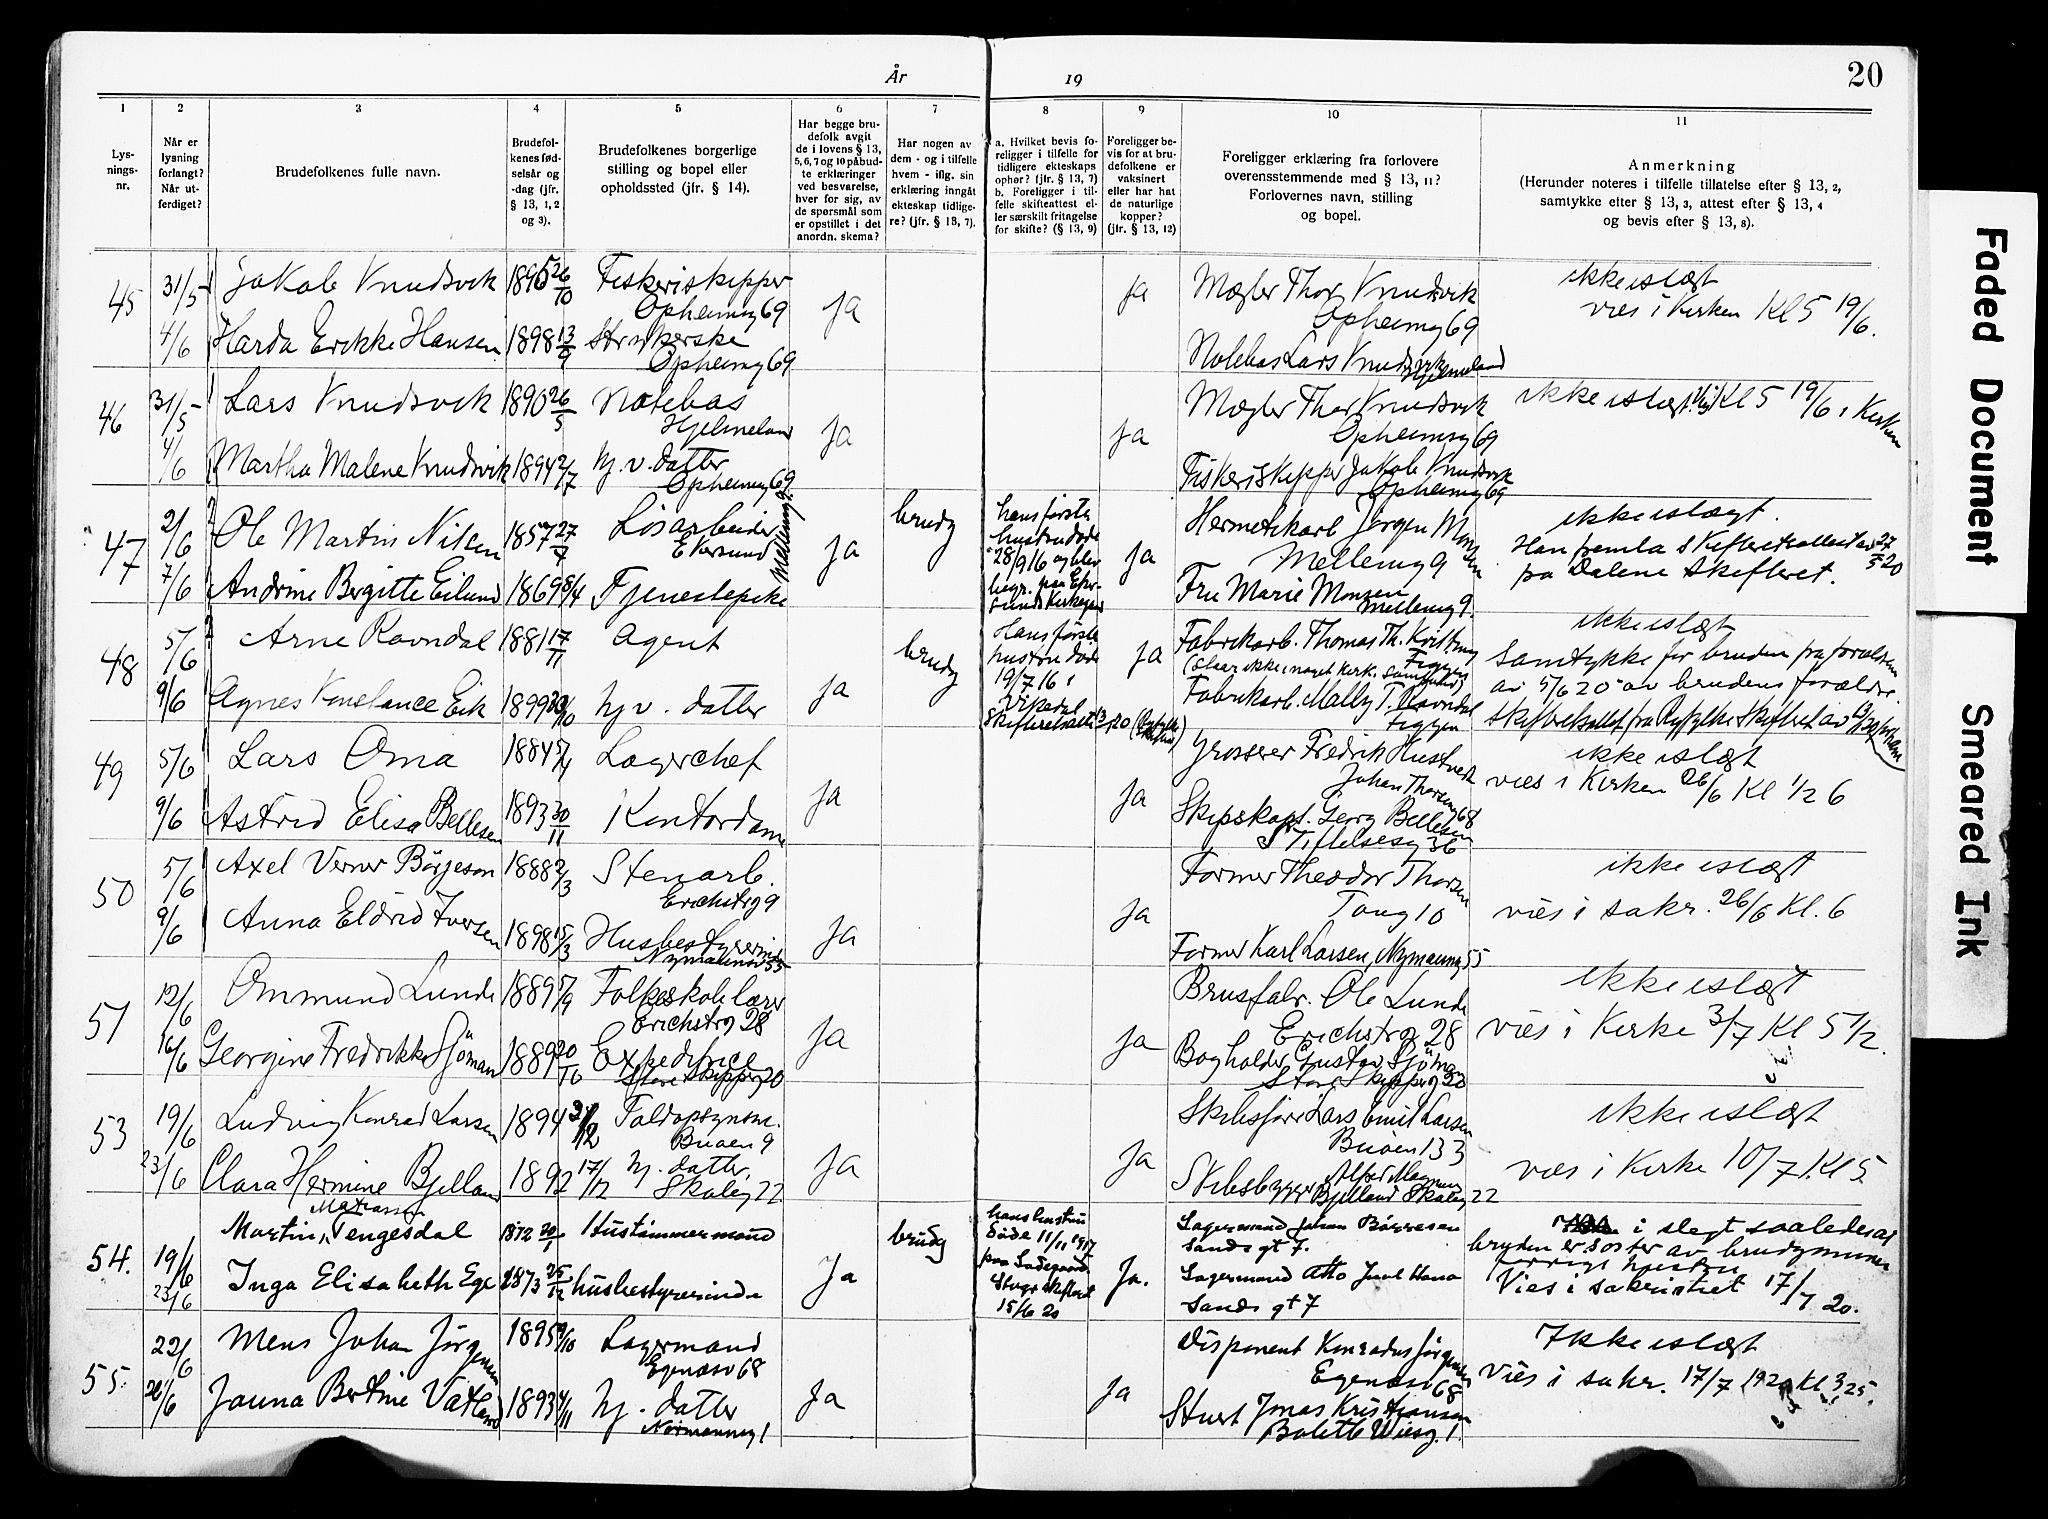 År 19
20
1 2 3 4 5 6 7 8 9 10 11
Lys-
nings-
nr.
Når er
lysning
forlangt?
Når ut-
ferdiget?
Brudefolkenes fulle navn.
Brudefol-
kenes fød-
selsår og
-dag (jfr.
§ 13, 1, 2
og 3).
Brudefolkenes borgerlige
stilling og bopel eller
opholdssted (jfr. § 14).
Har begge bru-
defolk avgit
de i lovens § 13,
5, 6, 7 og 10 påbud-
te erklæringer
ved besvarelse,
hver for sig, av
de spørsmål som
er opstillet i det
anordn. skema?
Har nogen av
dem - og i tilfelle
hvem - iflg. sin
erklæring inngått
ekteskap tidlige-
re? (jfr. § 13, 7).
a. Hvilket bevis fo-
religger i tilfelle for
tidligere ekteskaps
ophør? (jfr. § 13, 7)
b. Foreligger i til-
felle skifteattest el-
ler særskilt fritagelse
for skifte? (§ 13, 9)
Foreligger be-
vis for at bru-
defolkene er
vaksinert
eller har hat
de naturlige
kopper?
(jfr. § 13, 12)
Foreligger erklæring fra forlovere
overensstemmende med § 13, 11?
Forlovernes navn, stilling
og bopel.
Anmerkning
(Herunder noteres i tilfelle tillatelse efter § 13, 2,
samtykke efter § 13, 3, attest efter § 13, 4
og bevis efter § 13, 8).
45
31/5
4/6
Jakob Knudsvik
Harda Erikke Hansen
1895 26/10
1898 13/9
Fiskeriskipper
Opheimsg 69
Strikerske
Opheimsg 69
Ja
Ja
Mægler Thor Knudsvik
Opheimsg 69
Notebas Lars Knudsvik
Hjelmeland
ikke islægt
vies i Kirken Kl 5 19/6.
46
31/5
4/6
Lars Knudsvik
Martha Malene Knudsvik
1890 26/5
1894 2/7
Notebas
Hjelmeland
hj. v. datter
Opheimsg 69
Ja
Ja
Mægler Thor Knudsvik
Opheimsg 69
Fiskeriskipper Jakob Knudsvik
Opheimsg 69
ikke islægt. Kl 5 19/6 i Kirken
47
2/6
7/6
Ole Martin Nilsen
Andrine Bergitte Eilund
1857 27/9
1869 8/4
Løsarbeider
Ekersund
Tjenestepike
Mellemg 9.
Ja
brudg
hans første
hustru døde
28/9 16 og blev
begr. paa Eger-
sunds Kirkegar
Ja
Hermetikarb Jørgen Monsen
Mellemg 9
Fru Marie Monsen
Mellemg 9.
ikke islægt.
Han fremla skifteretsattest av 27/5 20
fra Dalene skifteret.
48
5/6
9/6
Arne Ravndal
Agnes Konstance Eik
1881 17/11
1899 30/10
Agent
hj v. datter
Ja
brudg
Hans første
hustru døde
19/7 16 i
Vikedal
Ja
Fabrikarb. Thomas Th. Kvitting
Figgen
(staar ikke i noget kirk. samfund)
Fabrikarb. Mally T. Ravndal
Figgen
ikke islægt
Samtykke for bruden fra forældrene
av 5/6 20 av brudens forældre.
49
5/6
9/6
Lars Oma
Astrid Elisa Bellesen
1884 5/4
1893 30/11
Lagerchef
Kontordame
Ja
Ja
Grosserer Fredrik Hustvedt
Johan Thorsøng 68
Skipskapt. Georg Bellesen
Stiftelsesg 36
ikke islægt
vies i Kirken 26/6 Kl 1/2 6
50
5/6
9/6
Axel Verner Börjeson
Anna Eldrid Iversen
1888 2/3
1898 15/3
Stenarb.
Erichstrg 9
Husbestyrerinde
Nymannsv 55
Ja
Ja
Former Theodor Thorsen
Tang 10
Former Karl Larsen, Nymannsg 55
ikke islægt
vies i sakr. 26/6 Kl. 6
51
12/6
16/6
Ommund Lunde
Georgine Fredrikke Sjöman
1889 5/9
1889 20/10
Folkeskolelærer
Erichstrg 28
Expeditrice
Store Skipperg 20
Ja
Ja
Brusfabr. Ole Lunde
Erichstrg 28
Bogholder Gustav Sjöman
Store Skipperg 20
ikke islægt
vies i Kirke 3/7 Kl 5 1/2.
53
19/6
23/6
Ludvig Konrad Larsen
Clara Hermine Bjelland
1894
1892 17/12
Toldopsynsm.
Buøen 9
hj. datter,
Skaleg 22
Ja
Ja
Skibsfører Lars Emil Larsen
Buøen 133
Skibsbygger Alfred Magnus
Bjelland Skaleg 22
ikke islægt
vies i Kirke 10/7. Kl 5.
54.
19/6
23/6
Martin Tengesdal
Inga Elisabeth Ege
1872 20/1
1873 25/12
Hustømmermand
husbestyrerinde
Ja
brudg
hans hustru
døde 11/11 1917
paa Ladegaard.
15/6 20
Ja.
Lagermand Johan Børresen
Sandsgt 7.
Lagermand Otto Juul Hana
Sandsgt 7
i slegt saaledes at
bruden er søster av brudgommens
forrige hustru
Vies i sakristiet 17/7 20.
55
22/6
26/6
Mens Johan Jørgensen
Janna Bertine Vatland
1895 9/10
1893 4/11
Lagermand
Egenæsv 68
hj. datter
Normannsg 1
Ja
Ja
Disponent Konradus Jørgensen
Egenæsv 68
Stuert Jonas Kristiansen
Bolette Wiesg. 1.
Ikke islægt
Vies i sakr. 17/7 1920 Kl 3 25.
Faded Document
Smeared Ink